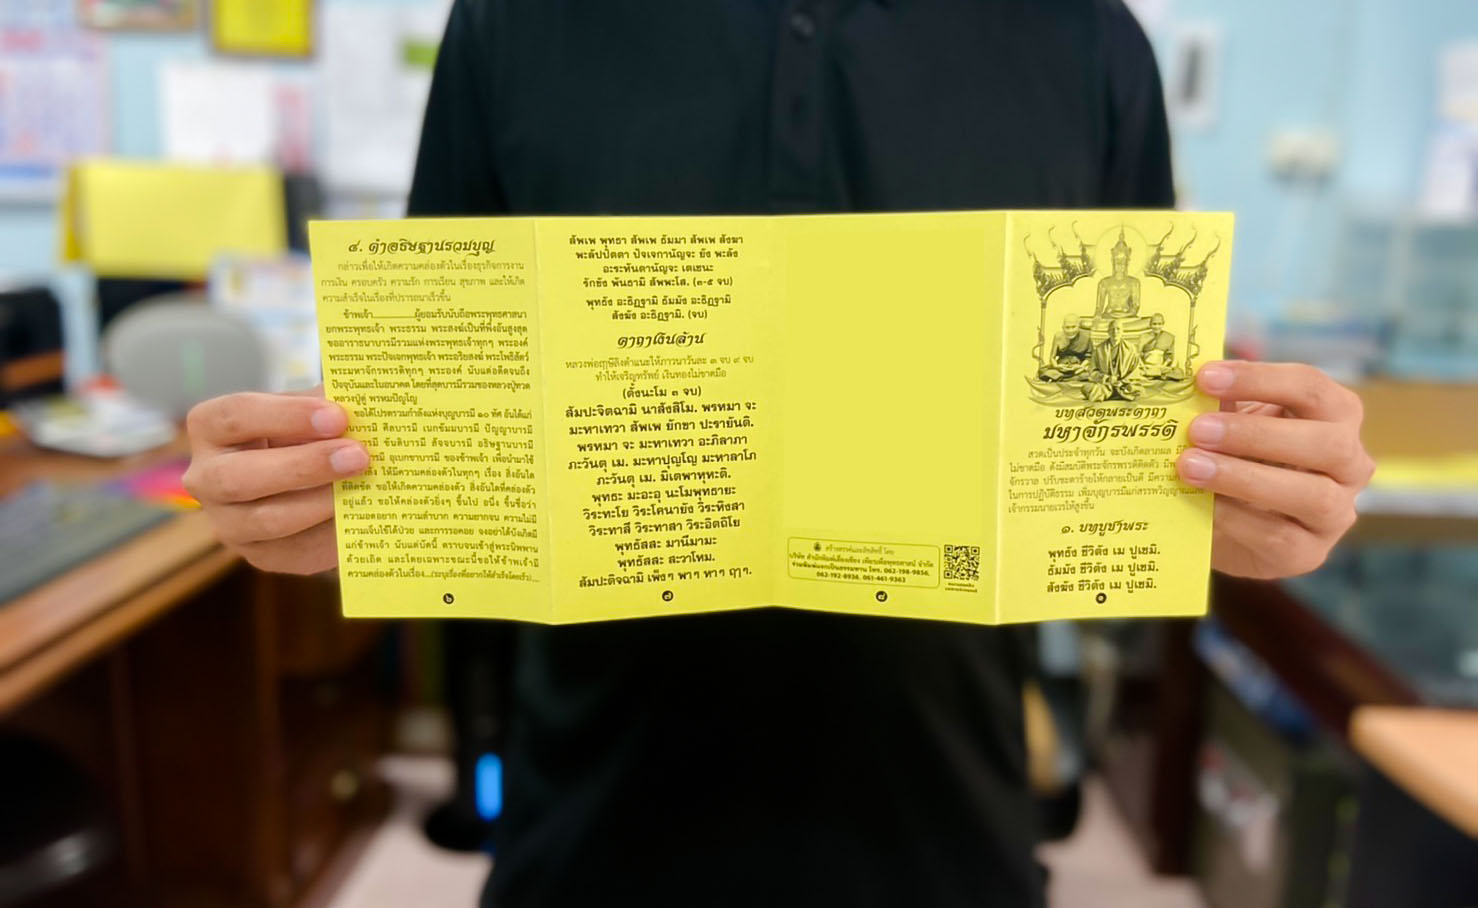 ๔. คำอธิษฐานรวมบุญ
กล่าวเพื่อให้เกิดความคล่องตัวในเรื่องธุรกิจการงาน
การเงิน ครอบครัว ความรัก การเรียน สุขภาพ และให้เกิด
ความสำเร็จในเรื่องที่ปรารถนาเร็วขึ้น
ข้าพเจ้า..............ผู้ยอมรับนับถือพระพุทธศาสนา
ยกพระพุทธเจ้า พระธรรม พระสงฆ์เป็นที่พึ่งอันสูงสุด
ขออาราธนาบารมีรวมแห่งพระพุทธเจ้าทุกๆ พระองค์
พระธรรม พระปัจเจกพุทธเจ้า พระอริยสงฆ์ พระโพธิสัตว์
พระมหาจักรพรรดิทุกๆ พระองค์ นับแต่อดีตจนถึง
ปัจจุบันและในอนาคต โดยที่สุดบารมีรวมของหลวงปู่ทวด
หลวงปู่ดู่ พรหมปัญโญ
ขอได้โปรดรวมกำลังแห่งบุญบารมี ๑๐ ทัศ อันได้แก่
บารมี ศีลบารมี เนกขัมมบารมี ปัญญาบารมี
บารมี ขันติบารมี สัจจบารมี อธิษฐานบารมี
บารมี อุเบกขาบารมี ของข้าพเจ้า เพื่อนำมาใช้
ให้มีความคล่องตัวในทุกๆ เรื่อง สิ่งอันใด
ที่ติดขัด ขอให้เกิดความคล่องตัว สิ่งอันใดที่คล่องตัว
อยู่แล้ว ขอให้คล่องตัวยิ่งๆ ขึ้นไป อนึ่ง ขึ้นชื่อว่า
ความอดอยาก ความลำบาก ความยากจน ความไม่มี
ความเจ็บไข้ได้ป่วย และการรอคอย จงอย่าได้บังเกิดมี
แก่ข้าพเจ้า นับแต่บัดนี้ ตราบจนเข้าสู่พระนิพพาน
ด้วยเถิด และโดยเฉพาะขณะนี้ขอให้ข้าพเจ้ามี
ความคล่องตัวในเรื่อง...(ระบุเรื่องที่อยากให้สำเร็จโดยเร็ว)...
๖
สัพเพ พุทธา สัพเพ ธัมมา สัพเพ สังฆา
พะลัปปัตตา ปัจเจกานัญจะ ยัง พะลัง
อะระหันตานัญจะ เตเชนะ
รักขัง พันธามิ สัพพะโส. (๓-๕ จบ)
พุทธัง อะธิฏฐามิ ธัมมัง อะธิฏฐามิ
สังฆัง อะธิฏฐามิ. (จบ)
คาถาเงินล้าน
หลวงพ่อฤๅษีลิงดำแนะให้ภาวนาวันละ ๓ จบ ๙ จบ
ทำให้เจริญทรัพย์ เงินทองไม่ขาดมือ
(ตั้งนะโม ๓ จบ)
สัมปะจิตฉามิ นาสังสิโม. พรหมา จะ
มะหาเทวา สัพเพ ยักขา ปะรายันติ.
พรหมา จะ มะหาเทวา อะภิลาภา
ภะวันตุ เม. มะหาปุญโญ มะหาลาโภ
ภะวันตุ เม. มิเตพาหุหะติ.
พุทธะ มะอะอุ นะโมพุทธายะ
วิระทะโย วิระโคนายัง วิระหิงสา
วิระทาสี วิระทาสา วิระอิตถิโย
พุทธัสสะ มานีมามะ
พุทธัสสะ สะวาโหม.
สัมปะติจฉามิ เพ็งๆ พาๆ หาๆ ฤๅๆ.
๗
สร้างสรรค์และลิขสิทธิ์ โดย
บริษัท สำนักพิมพ์เลี่ยงเชียง เพียรเพื่อพุทธศาสน์ จำกัด
ร่วมพิมพ์แจกเป็นธรรมทาน โทร. 062-198-9856,
062-192-8936, 061-461-9363
๘
บทสวดพระคาถา
มหาจักรพรรดิ
สวดเป็นประจำทุกวัน จะบังเกิดลาภผล
ไม่ขาดมือ ดังมีสมบัติพระจักรพรรดิติดตัว
จักรวาล ปรับชะตาร้ายให้กลายเป็นดี มีความ
ในการปฏิบัติธรรม เพิ่มบุญบารมีแก่สรรพวิญญาณและ
เจ้ากรรมนายเวรให้สูงขึ้น
๑. บทบูชาพระ
พุทธัง ชีวิตัง เม ปูเชมิ.
ธัมมัง ชีวิตัง เม ปูเชมิ.
สังฆัง ชีวิตัง เม ปูเชมิ.
๑